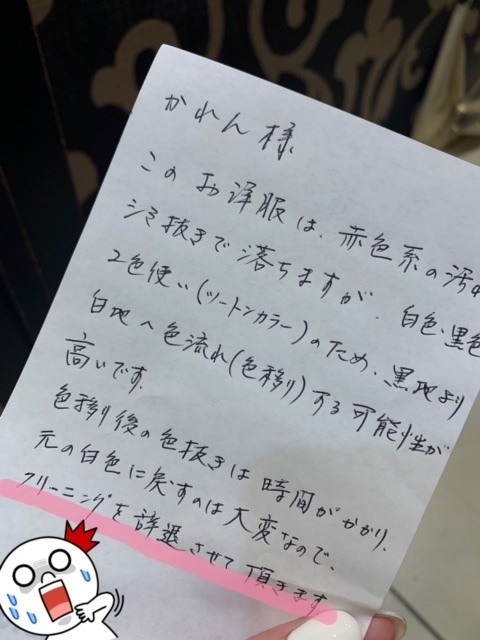 かれん様
このお洋服は、赤色系の汚
シミ抜きで落ちますが、白色、黒色
2色使い(ツートンカラー)のため、黒地より
白地へ色流れ(色移り)する可能性が
高いです。
色移り後の色抜きは時間がかかり、
元の白色に戻すのは大変なので、
クリーニングを辞退させて頂きます